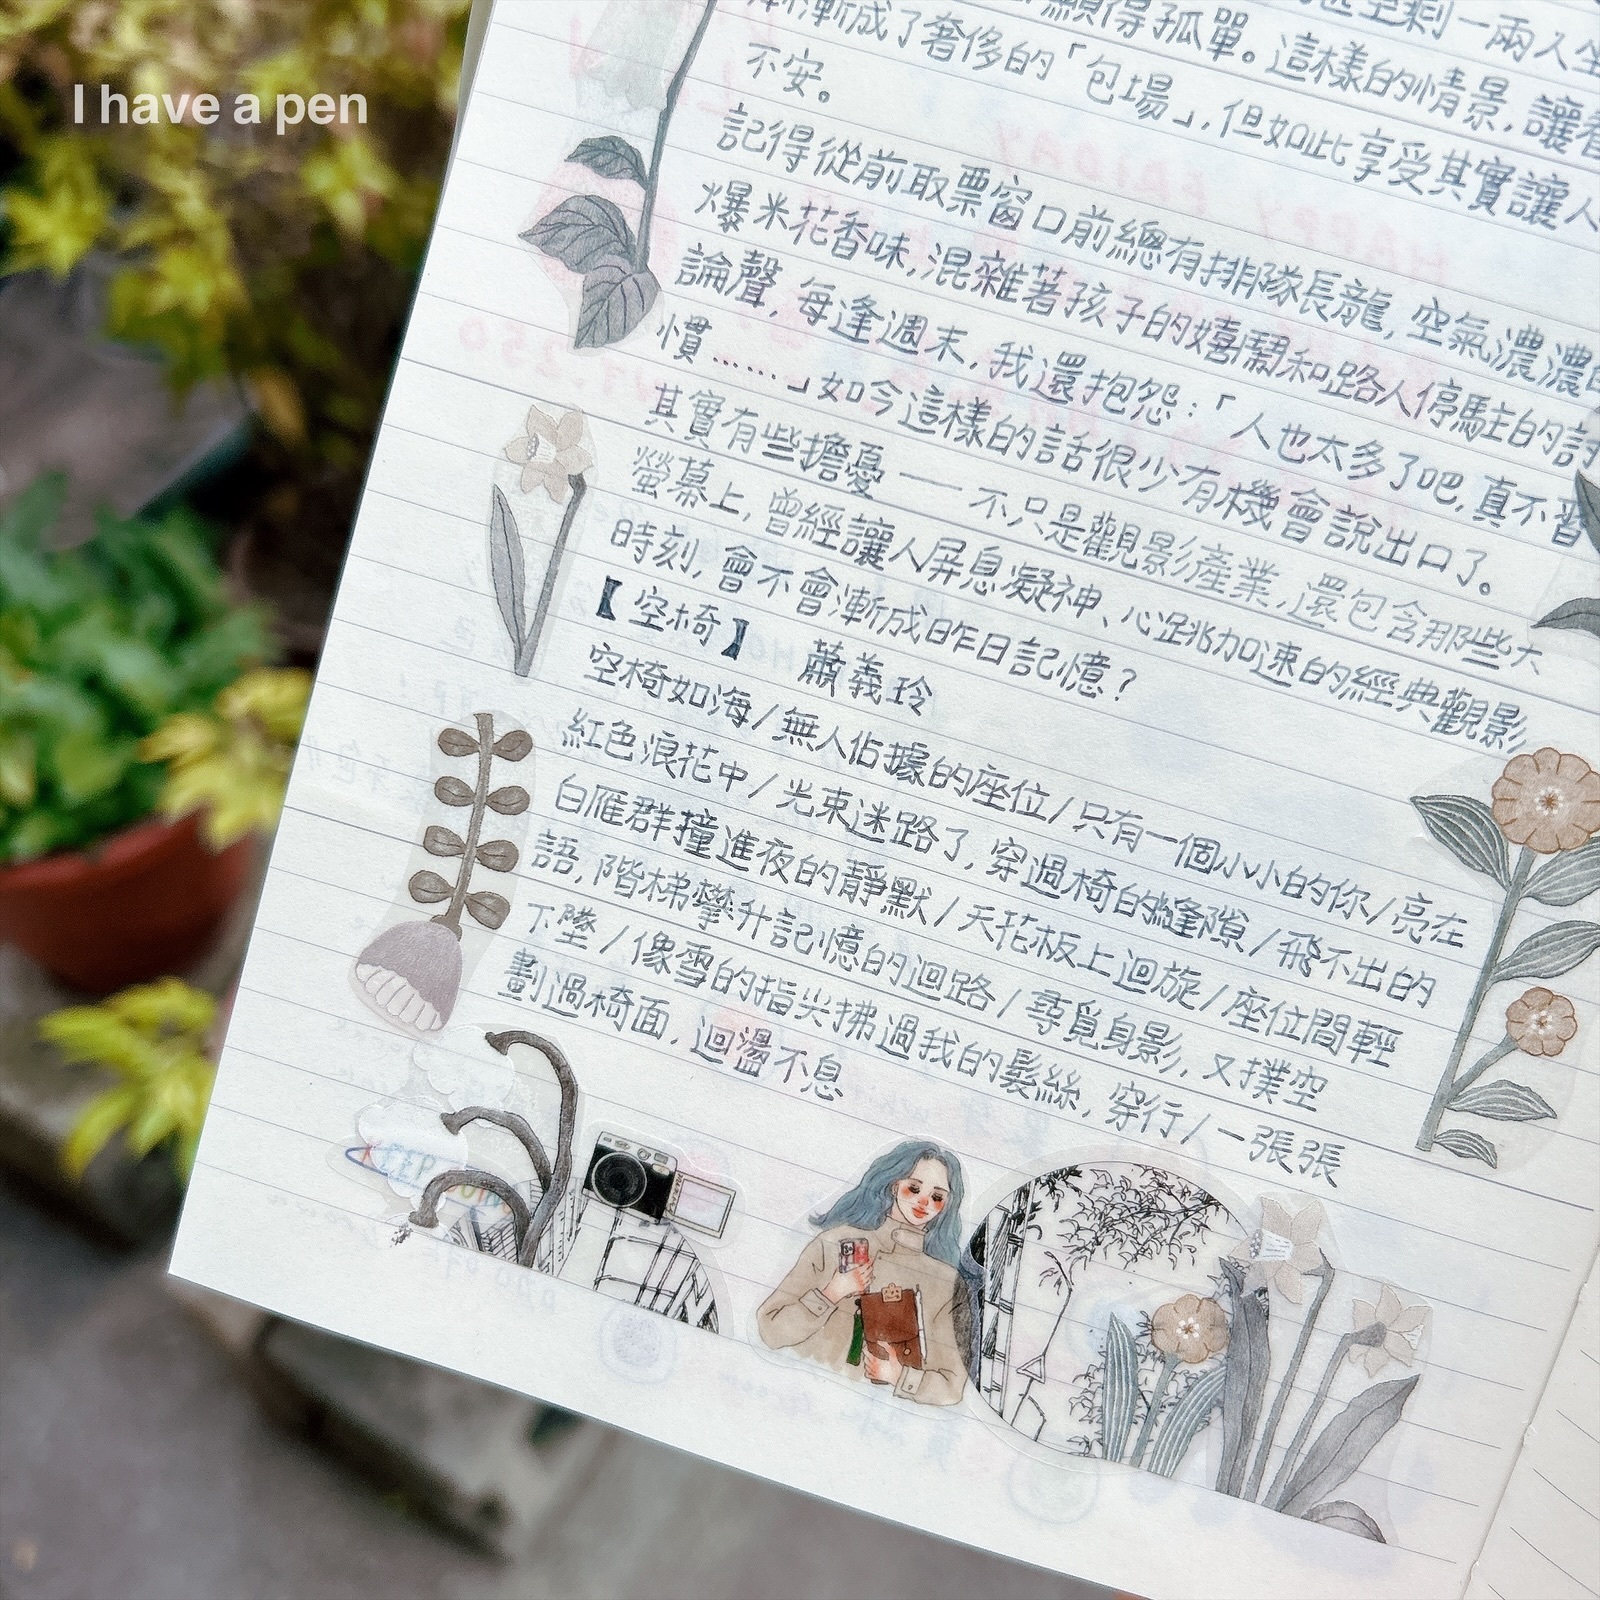 I have a pen
顯得孤單。這樣的情景,讓看
漸漸成了奢侈的「包場」,但如此享受其實讓人
不安。
記得從前取票窗口前總有排隊長龍,空氣濃濃的
爆米花香味,混雜著孩子的嬉鬧和路人停駐的討
論聲,每逢週末,我還抱怨:「人也太多了吧,真不習
慣……」如今這樣的話很少有機會說出口了。
其實有些擔憂——不只是觀影產業,還包含那些大
螢幕上,曾經讓人屏息凝神、心跳加速的經典觀影
時刻,會不會漸成昨日記憶?
【空椅】 蕭義玲
空椅如海/無人佔據的座位/只有一個小小的你/亮在
紅色浪花中/光束迷路了,穿過椅的縫隙/飛不出的
白雁群撞進夜的靜默/天花板上迴旋/座位間輕
語,階梯攀升記憶的迴路/尋覓身影,又撲空
下墜/像雪的指尖拂過我的髮絲,穿行/一張張
劃過椅面,迴盪不息